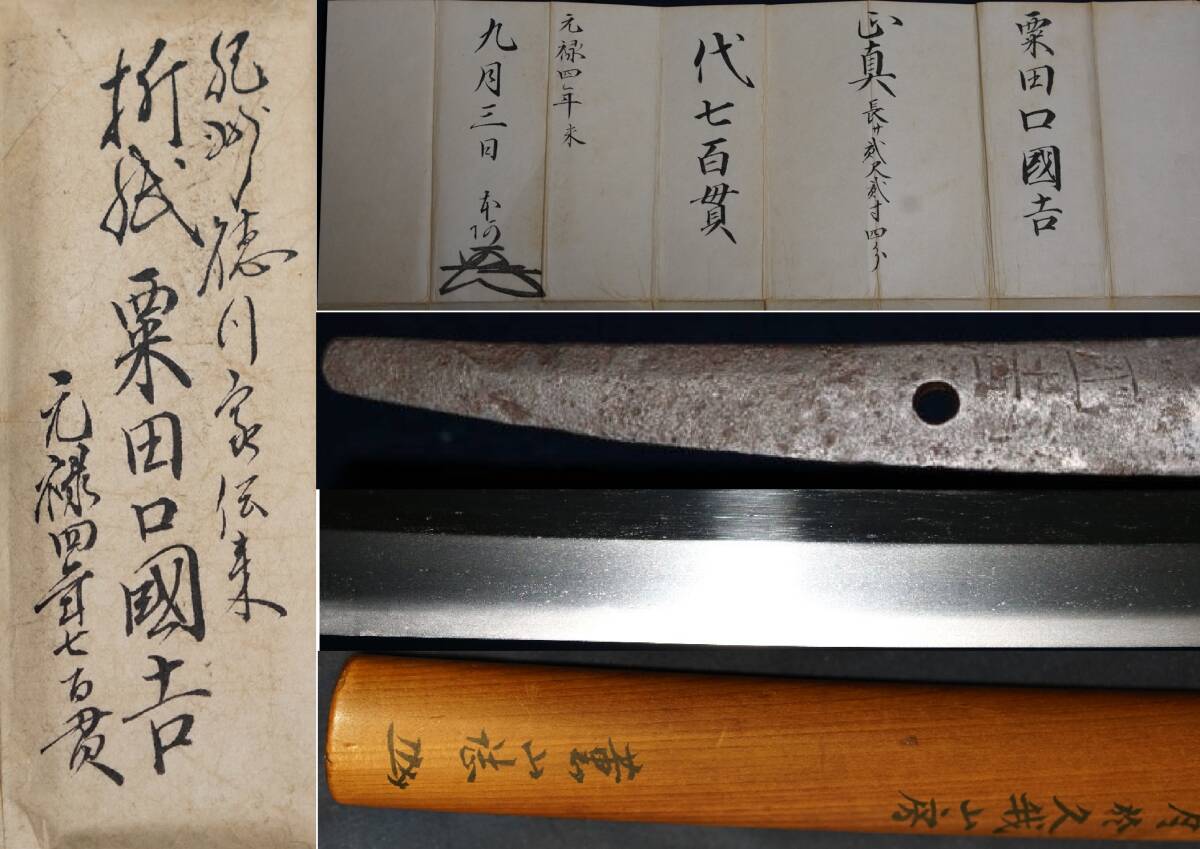 紀州徳川家伝来
折紙 粟田口國吉
元禄四年七百貫
粟田口國吉
正真 長サ貳尺貳寸四分
代七百貫
元禄四年
九月三日 本阿
薫山誌
月於久我山房